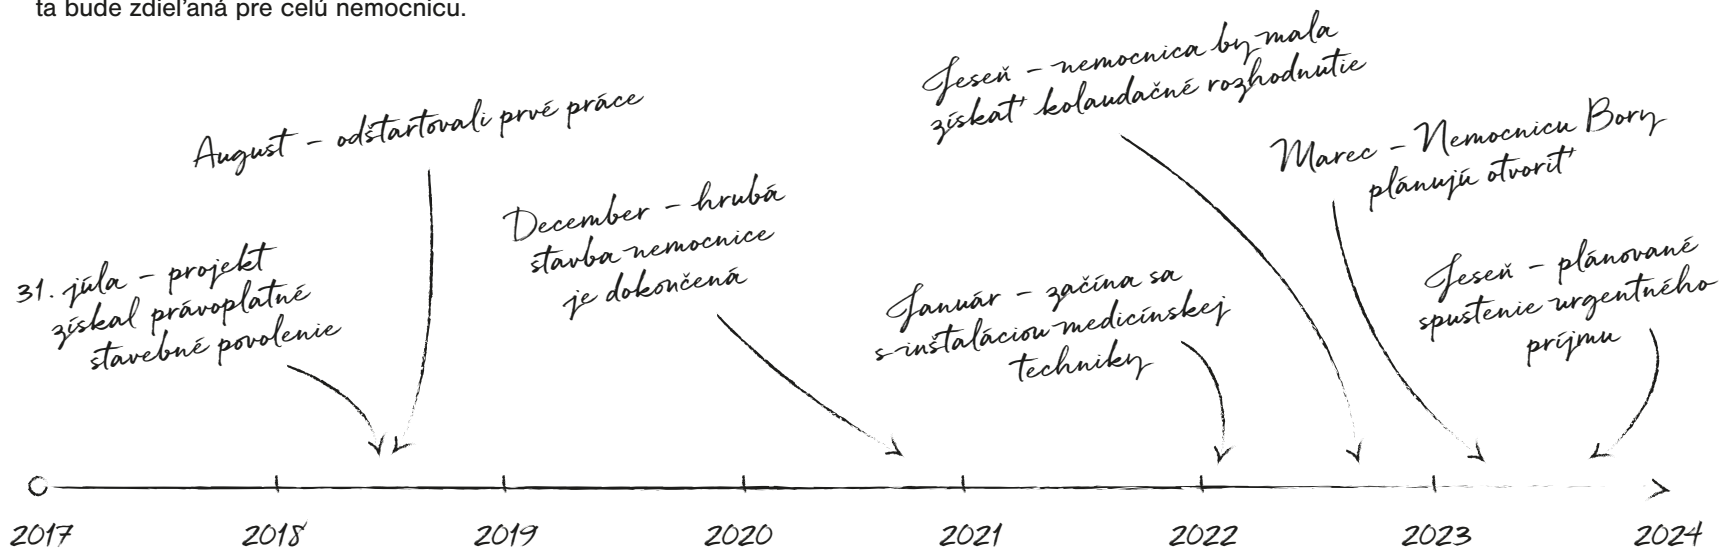 ta bude zdieľaná pre celú nemocnicu.
31. júla – projekt
získal právoplatné
stavebné povolenie
August – odštartovali prvé práce
December – hrubá
stavba nemocnice
je dokončená
Január – začína sa
s inštaláciou medicínskej
techniky
Jeseň – nemocnica by mala
získať kolaudačné rozhodnutie
Marec – Nemocnicu Bory
plánujú otvoriť
Jeseň – plánované
spustenie urgentného
príjmu
2017 2018 2019 2020 2021 2022 2023 2024